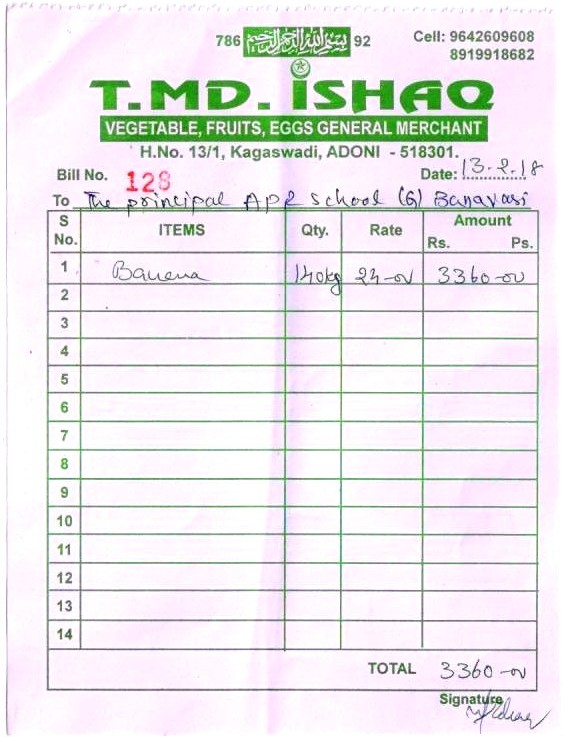 786 بسم الله الرحمن الرحيم 92
Cell: 9642609608
8919918682
T.MD. ISHAQ
VEGETABLE, FRUITS, EGGS GENERAL MERCHANT
H.No. 13/1, Kagaswadi, ADONI - 518301.
Bill No. 128 Date: 13-2-18
To The principal APR School (G) Banavasi
S No. ITEMS Qty. Rate Amount
Rs. Ps.
1 Banena 140kg 24-00 3360-00
2
3
4
5
6
7
8
9
10
11
12
13
14
TOTAL 3360-00
Signature